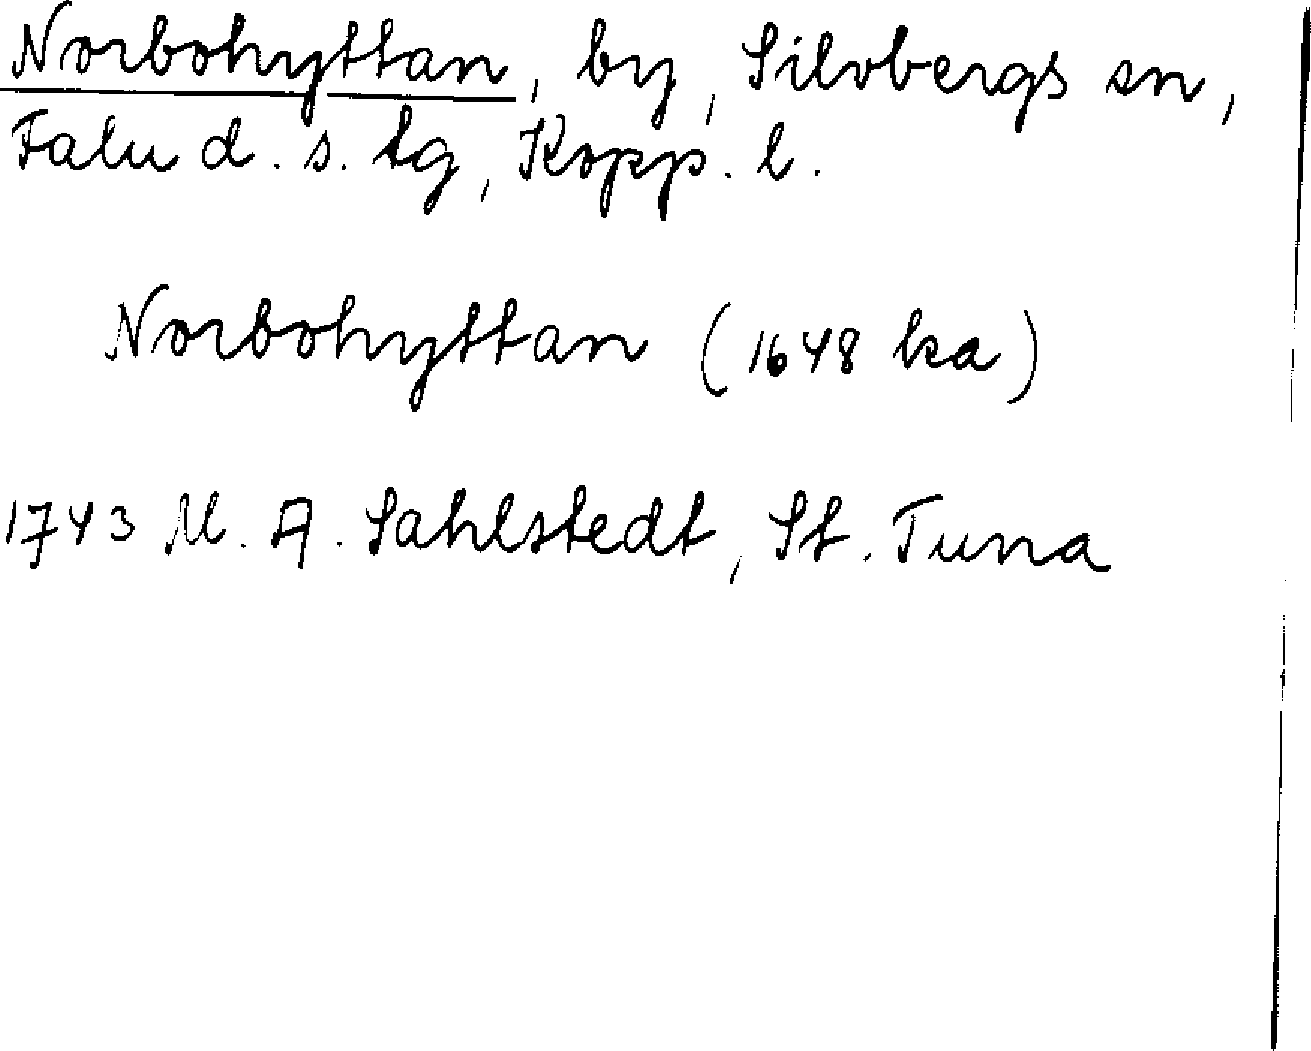 Norbohyttan, by, Silvbergs sn,
Falu d. s. tg, Kopp. l.
Norbohyttan (1648 ka)
1743 M. A. Sahlstedt, St. Tuna